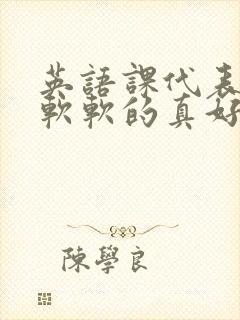 英語課代表
軟軟的真好
陳學良